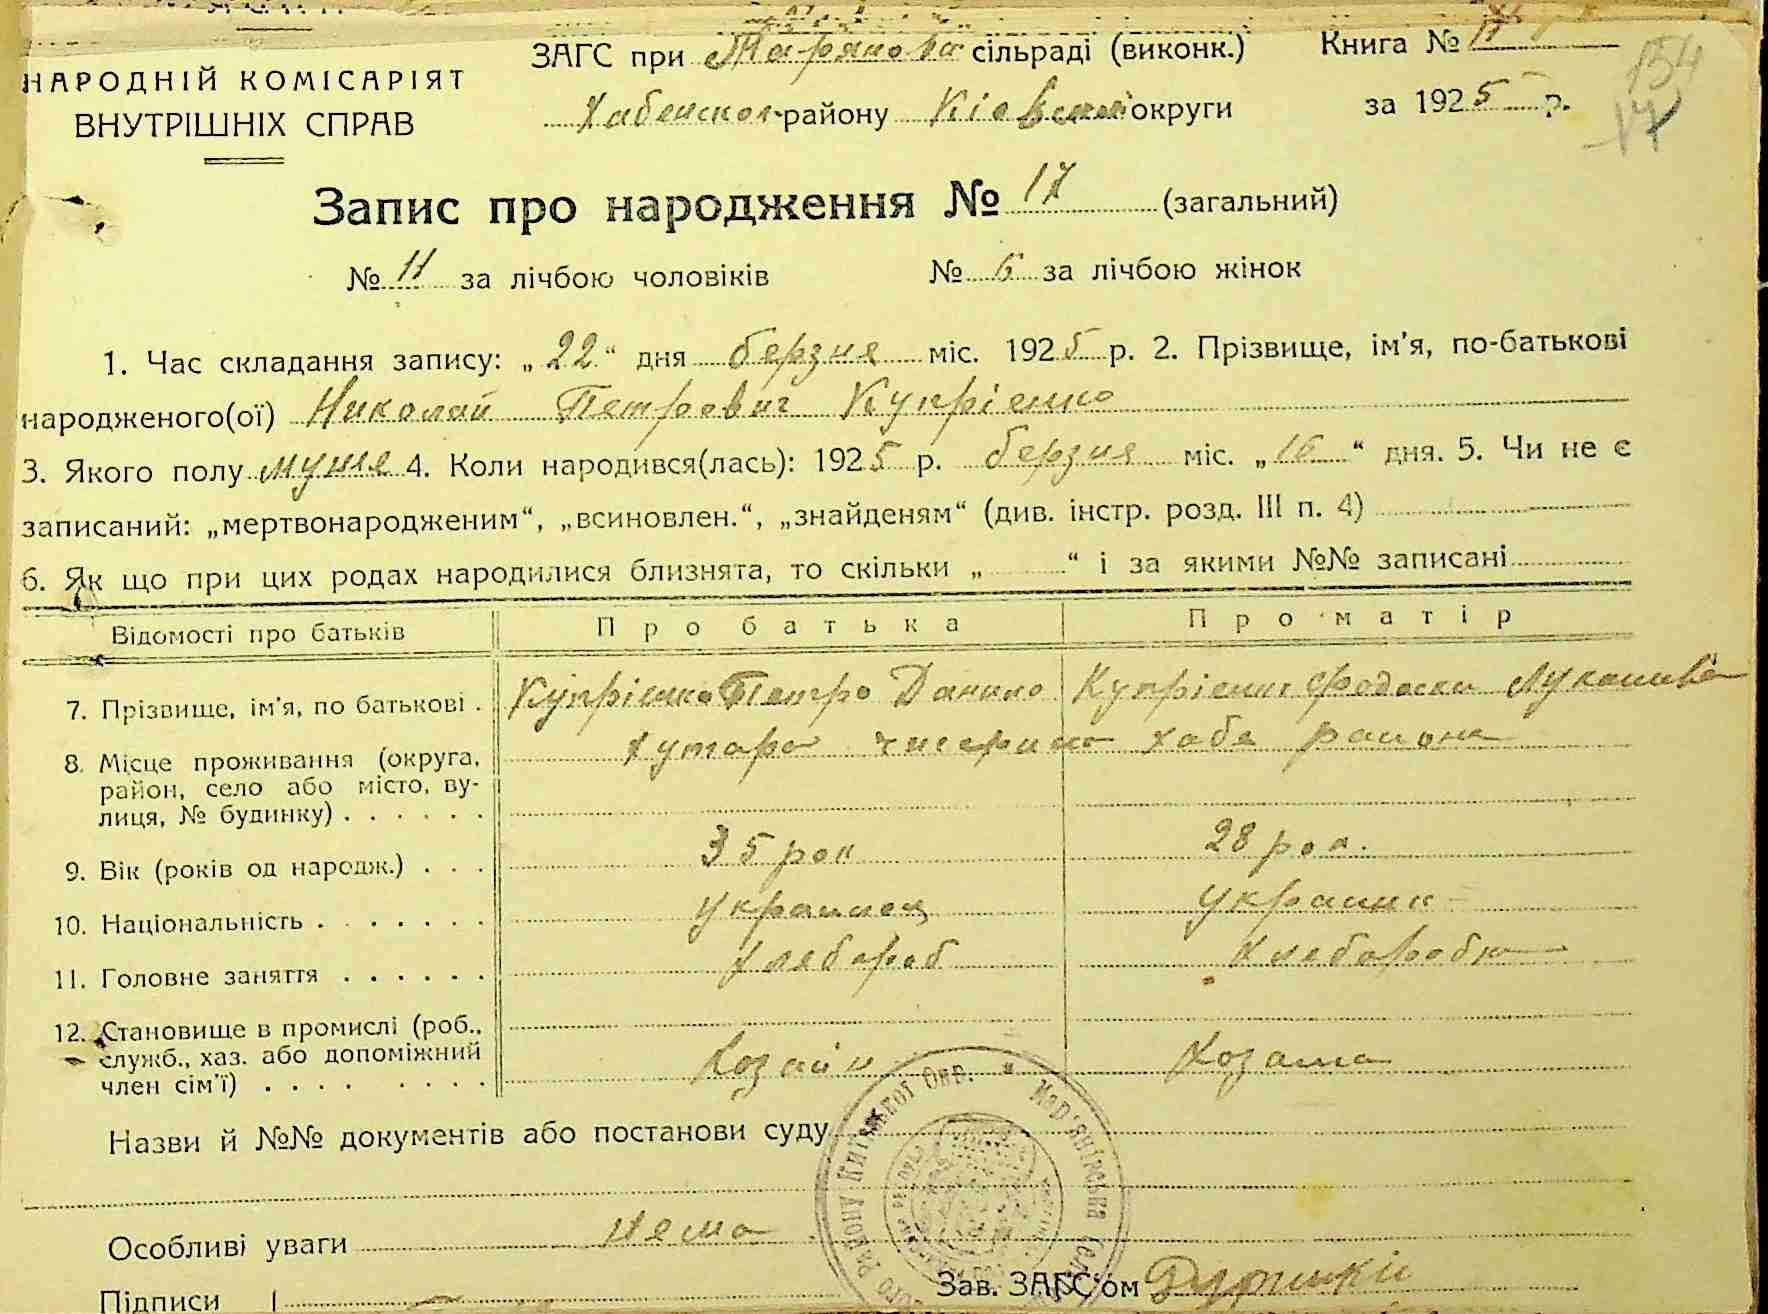 ЗАГС при Маряновс сільраді (виконк.) Книга № 11
НАРОДНІЙ КОМІСАРІЯТ
ВНУТРІШНІХ СПРАВ
Хабенског району Кіевской округи за 1925 р.
154
17
Запис про народження № 17 (загальний)
№ 11 за лічбою чоловіків № 6 за лічбою жінок
1. Час складання запису: „22“ дня берзня міс. 1925 р. 2. Прізвище, ім'я, по-батькові
народженого(ої) Николай Петрович Купріенко
3. Якого полу мужя 4. Коли народився(лась): 1925 р. берзня міс. „16“ дня. 5. Чи не є
записаний: „мертвонародженим“, „всиновлен.“, „знайденям“ (див. інстр. розд. III п. 4)
6. Як що при цих родах народилися близнята, то скільки „ “ і за якими №№ записані
Відомості про батьків Про батька Про матір
7. Прізвище, ім'я, по батькові . Купріенко Петро Данило Купріенк Федоски Лукашива
8. Місце проживання (округа, хутара хабе района
район, село або місто, ву-
лиця, № будинку) . . . . . .
9. Вік (років од народж.) . . . 35 рок 28 рок.
10. Національність . . . . . . . украинец украинк
11. Головне заняття . . . . . . хлебороб хлеборобю
12. Становище в промислі (роб.,
служб., хаз. або допоміжний
член сім'ї) . . . . . . . . . Хозаин Хозаика
Назви й №№ документів або постанови суду
Особливі уваги нема
Зав. ЗАГС'ом
Підписи
Мар'янівська
району Київської Окр.